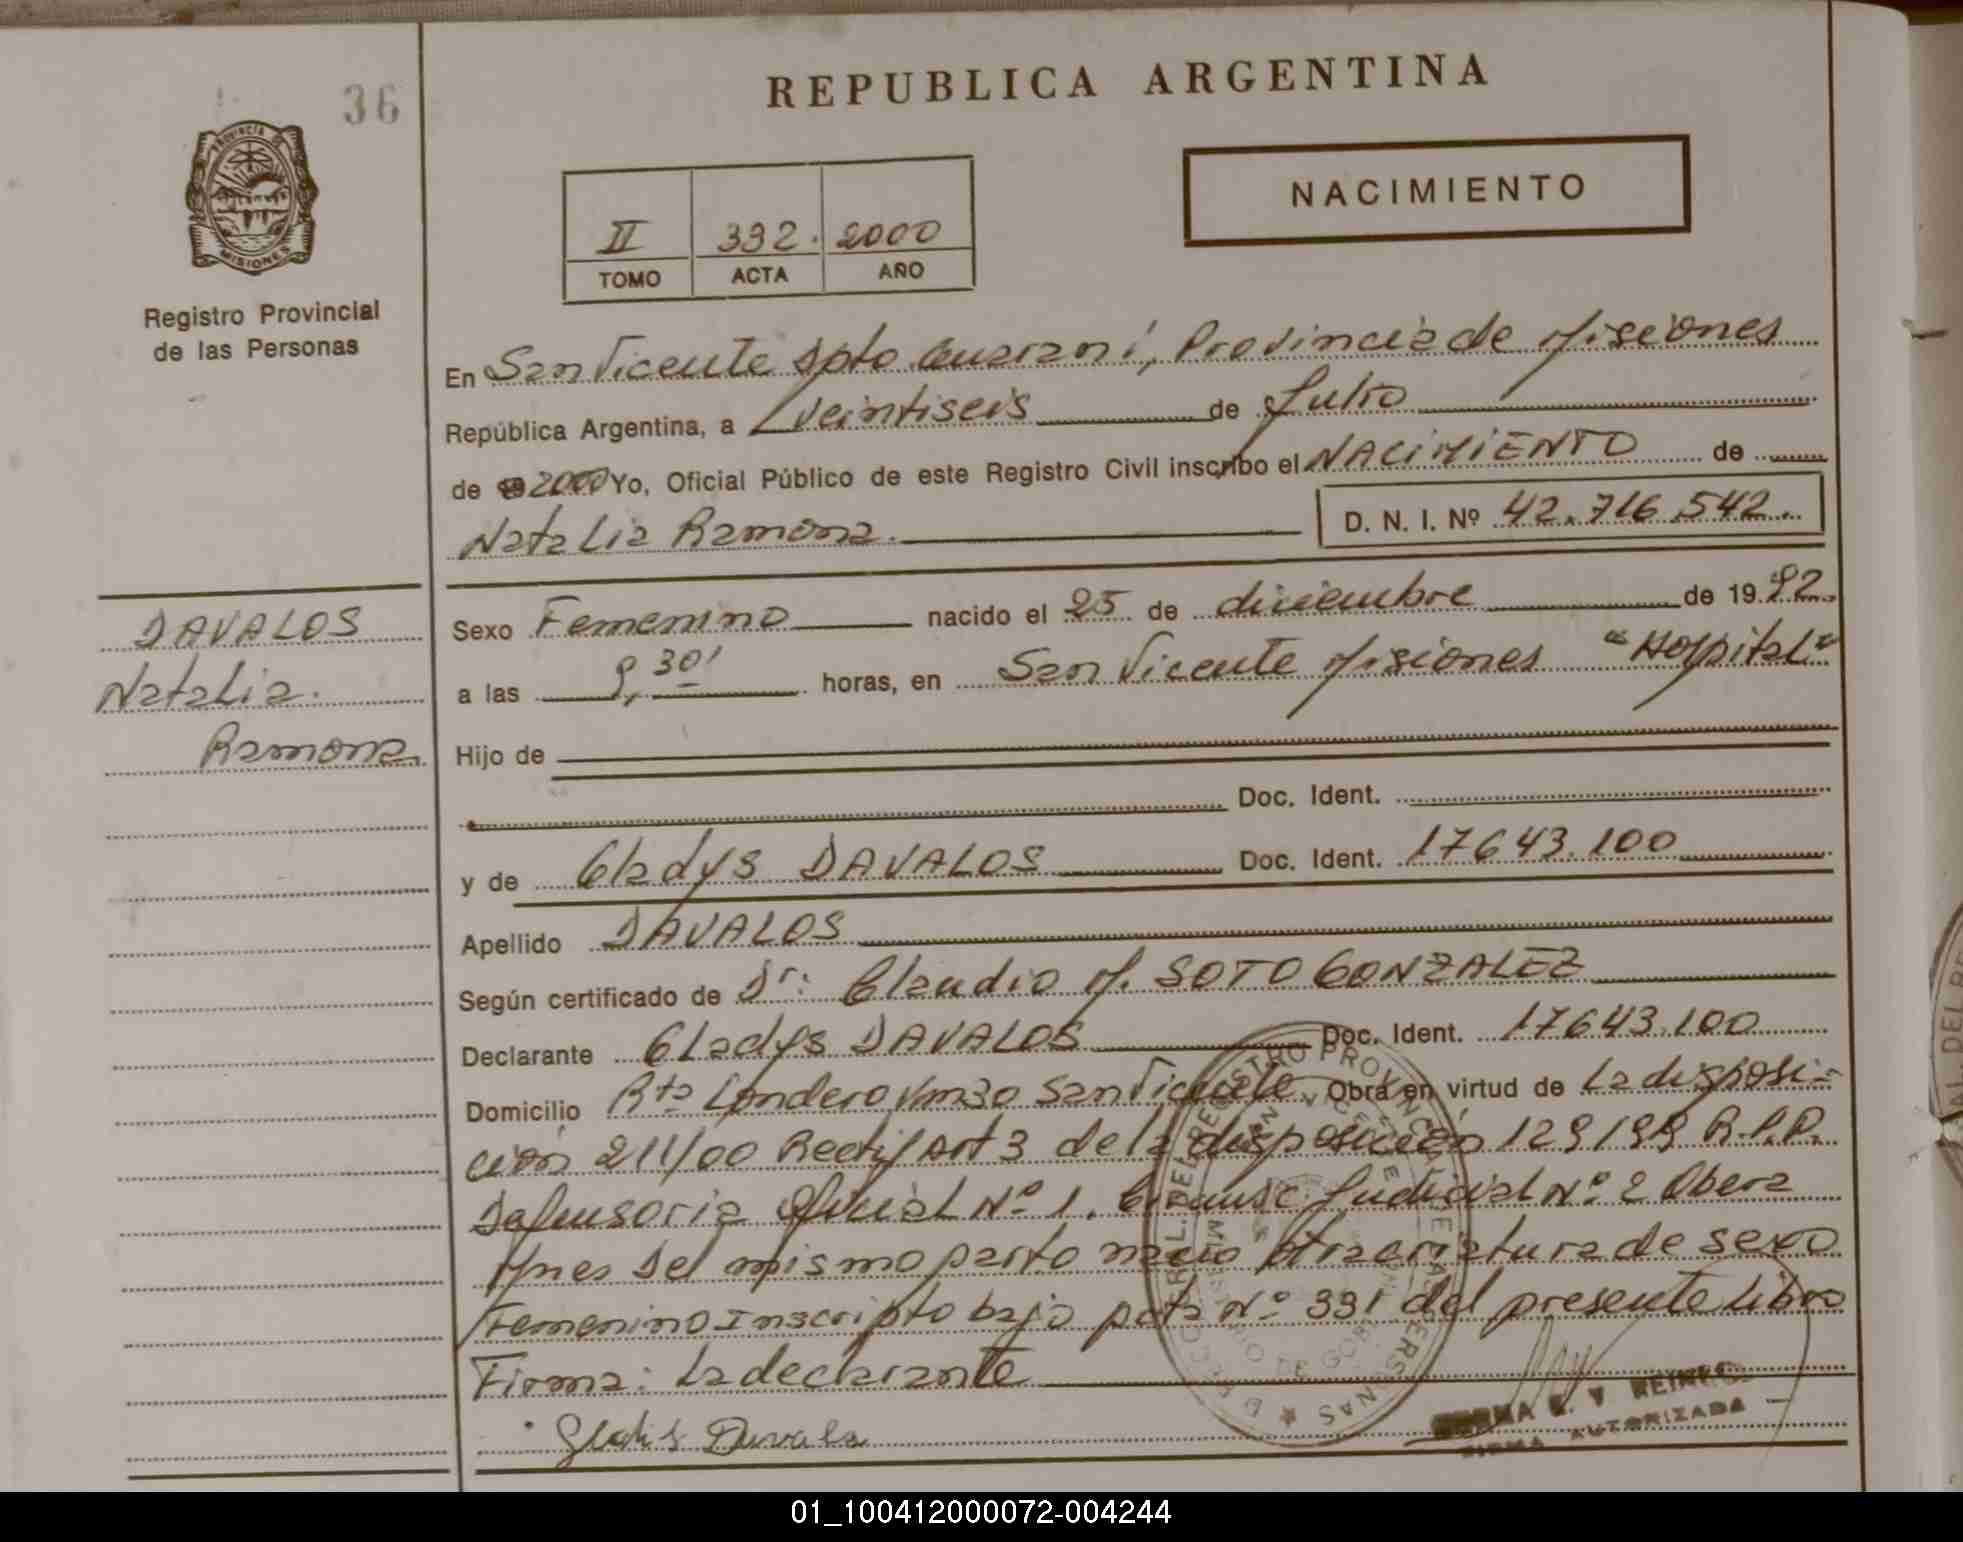 36
REPUBLICA ARGENTINA
PROVINCIA DE MISIONES
Registro Provincial
de las Personas
II 332. 2000
TOMO ACTA AÑO
NACIMIENTO
En San Vicente Dpto Guarani, Provincia de Misiones
República Argentina, a Veintiseis de Julio
de 2000 Yo, Oficial Público de este Registro Civil inscribo el NACIMIENTO de
Natalia Ramona. D. N. I. Nº 42.716.542.
DAVALOS
Natalia.
Ramona.
Sexo Femenino nacido el 25 de diciembre de 1992.
a las 9,30' horas, en San Vicente Misiones "Hospital"
Hijo de
Doc. Ident.
y de Gladys DAVALOS Doc. Ident. 17643.100
Apellido DAVALOS
Según certificado de Dr: Claudio M. SOTO GONZALEZ
Declarante Gladys DAVALOS Doc. Ident. 17643.100
Domicilio Rta Londero Km30 San Vicente Obra en virtud de La disposi-
ción 211/00 Rectif Art 3 de la disposición 129/99 R.P.P.
Defensoria Oficial Nº 1. Circunsc. Judicial Nº 2 Obera
Mnes Del mismo parto nacio otra criatura de sexo
Femenino Inscripto bajo acta Nº 331 del presente Libro
Firma: La declarante
Gladis Davalo
FIRMA AUTORIZADA
01_100412000072-004244